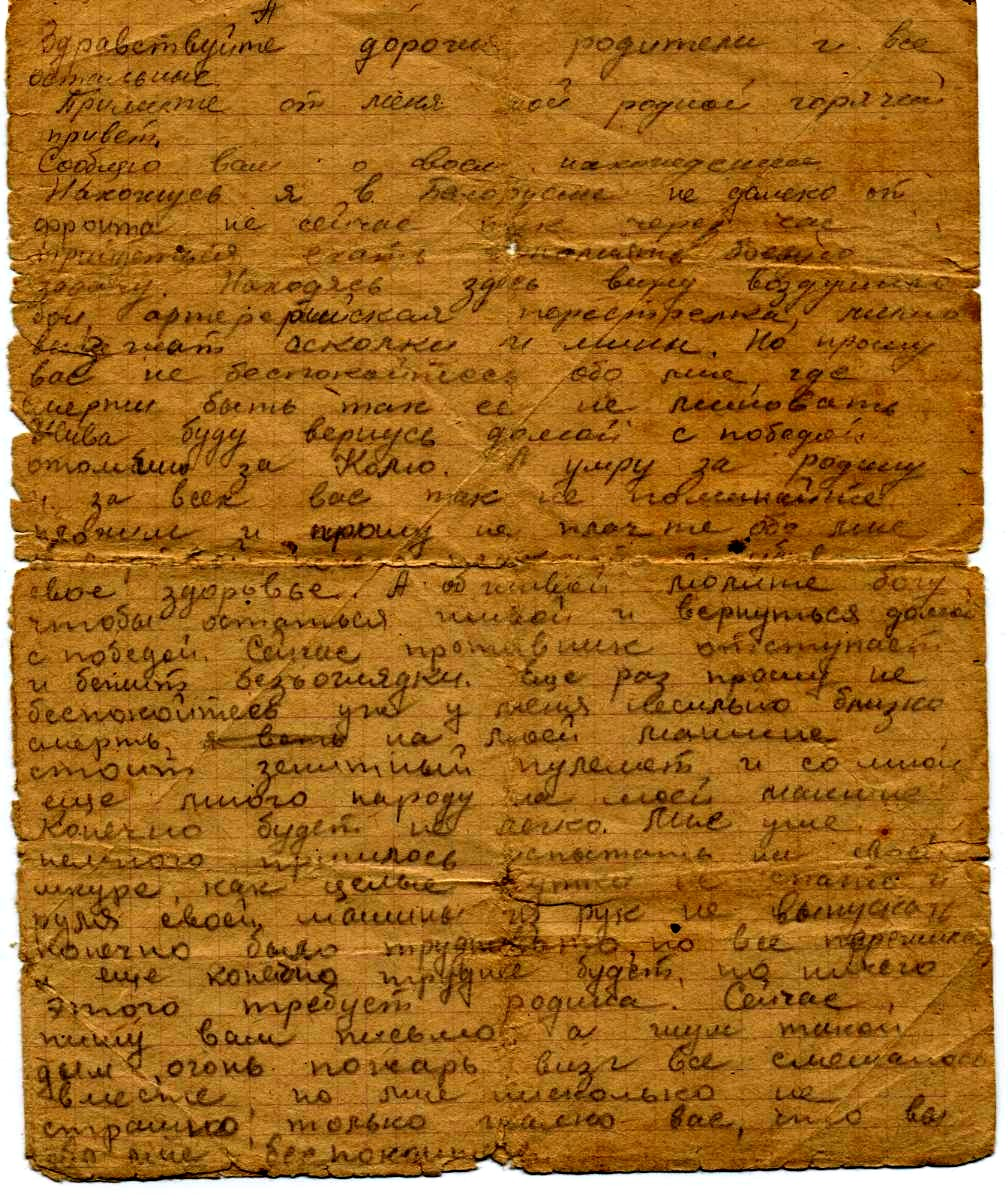 А
Здравствуйте дорогие родители и все
остальные.
Примите от меня мой родной горячий
привет.
Сообщаю вам о своем
Нахожусь я в Белорусие не далеко от
фронта не сейчас так через час
ехать выполнять боевую
задачу. Находясь здесь вижу воздушные
бои, перестрелка, мимо
осколки и мин. Но прошу
вас не беспокойтесь обо мне, где
смерти быть так ее не миновать
Жива буду вернусь домой с победой
отомщю за Колю. А умру за родину
и за всех вас так не поминайте
и прошу не плачте обо мне
свое здоровье. А об живой молите богу
чтобы остаться живой и вернуться домой
с победой. Сейчас противник отступает
и бежит безъоглядки. Еще раз прошу не
беспокойтесь уж у меня несильно близко
смерть, на моей машине
стоит зенитный пулемет и со мной
еще много народу на моей машине
Конечно будет не легко. Мне уже
немного пришлось испытать на своей
шкуре, как целые сутки не спать и
руля своей машины из рук не выпускать
конечно было но все
и еще конечно труднее будет, но ничего
этого требует родина. Сейчас
пишу вам письмо, а шум такой
дым, огонь пожарь визг все смешалось
вместе но мне нисколько не
страшно, только жалко вас, что вы
обо мне беспокоитесь.